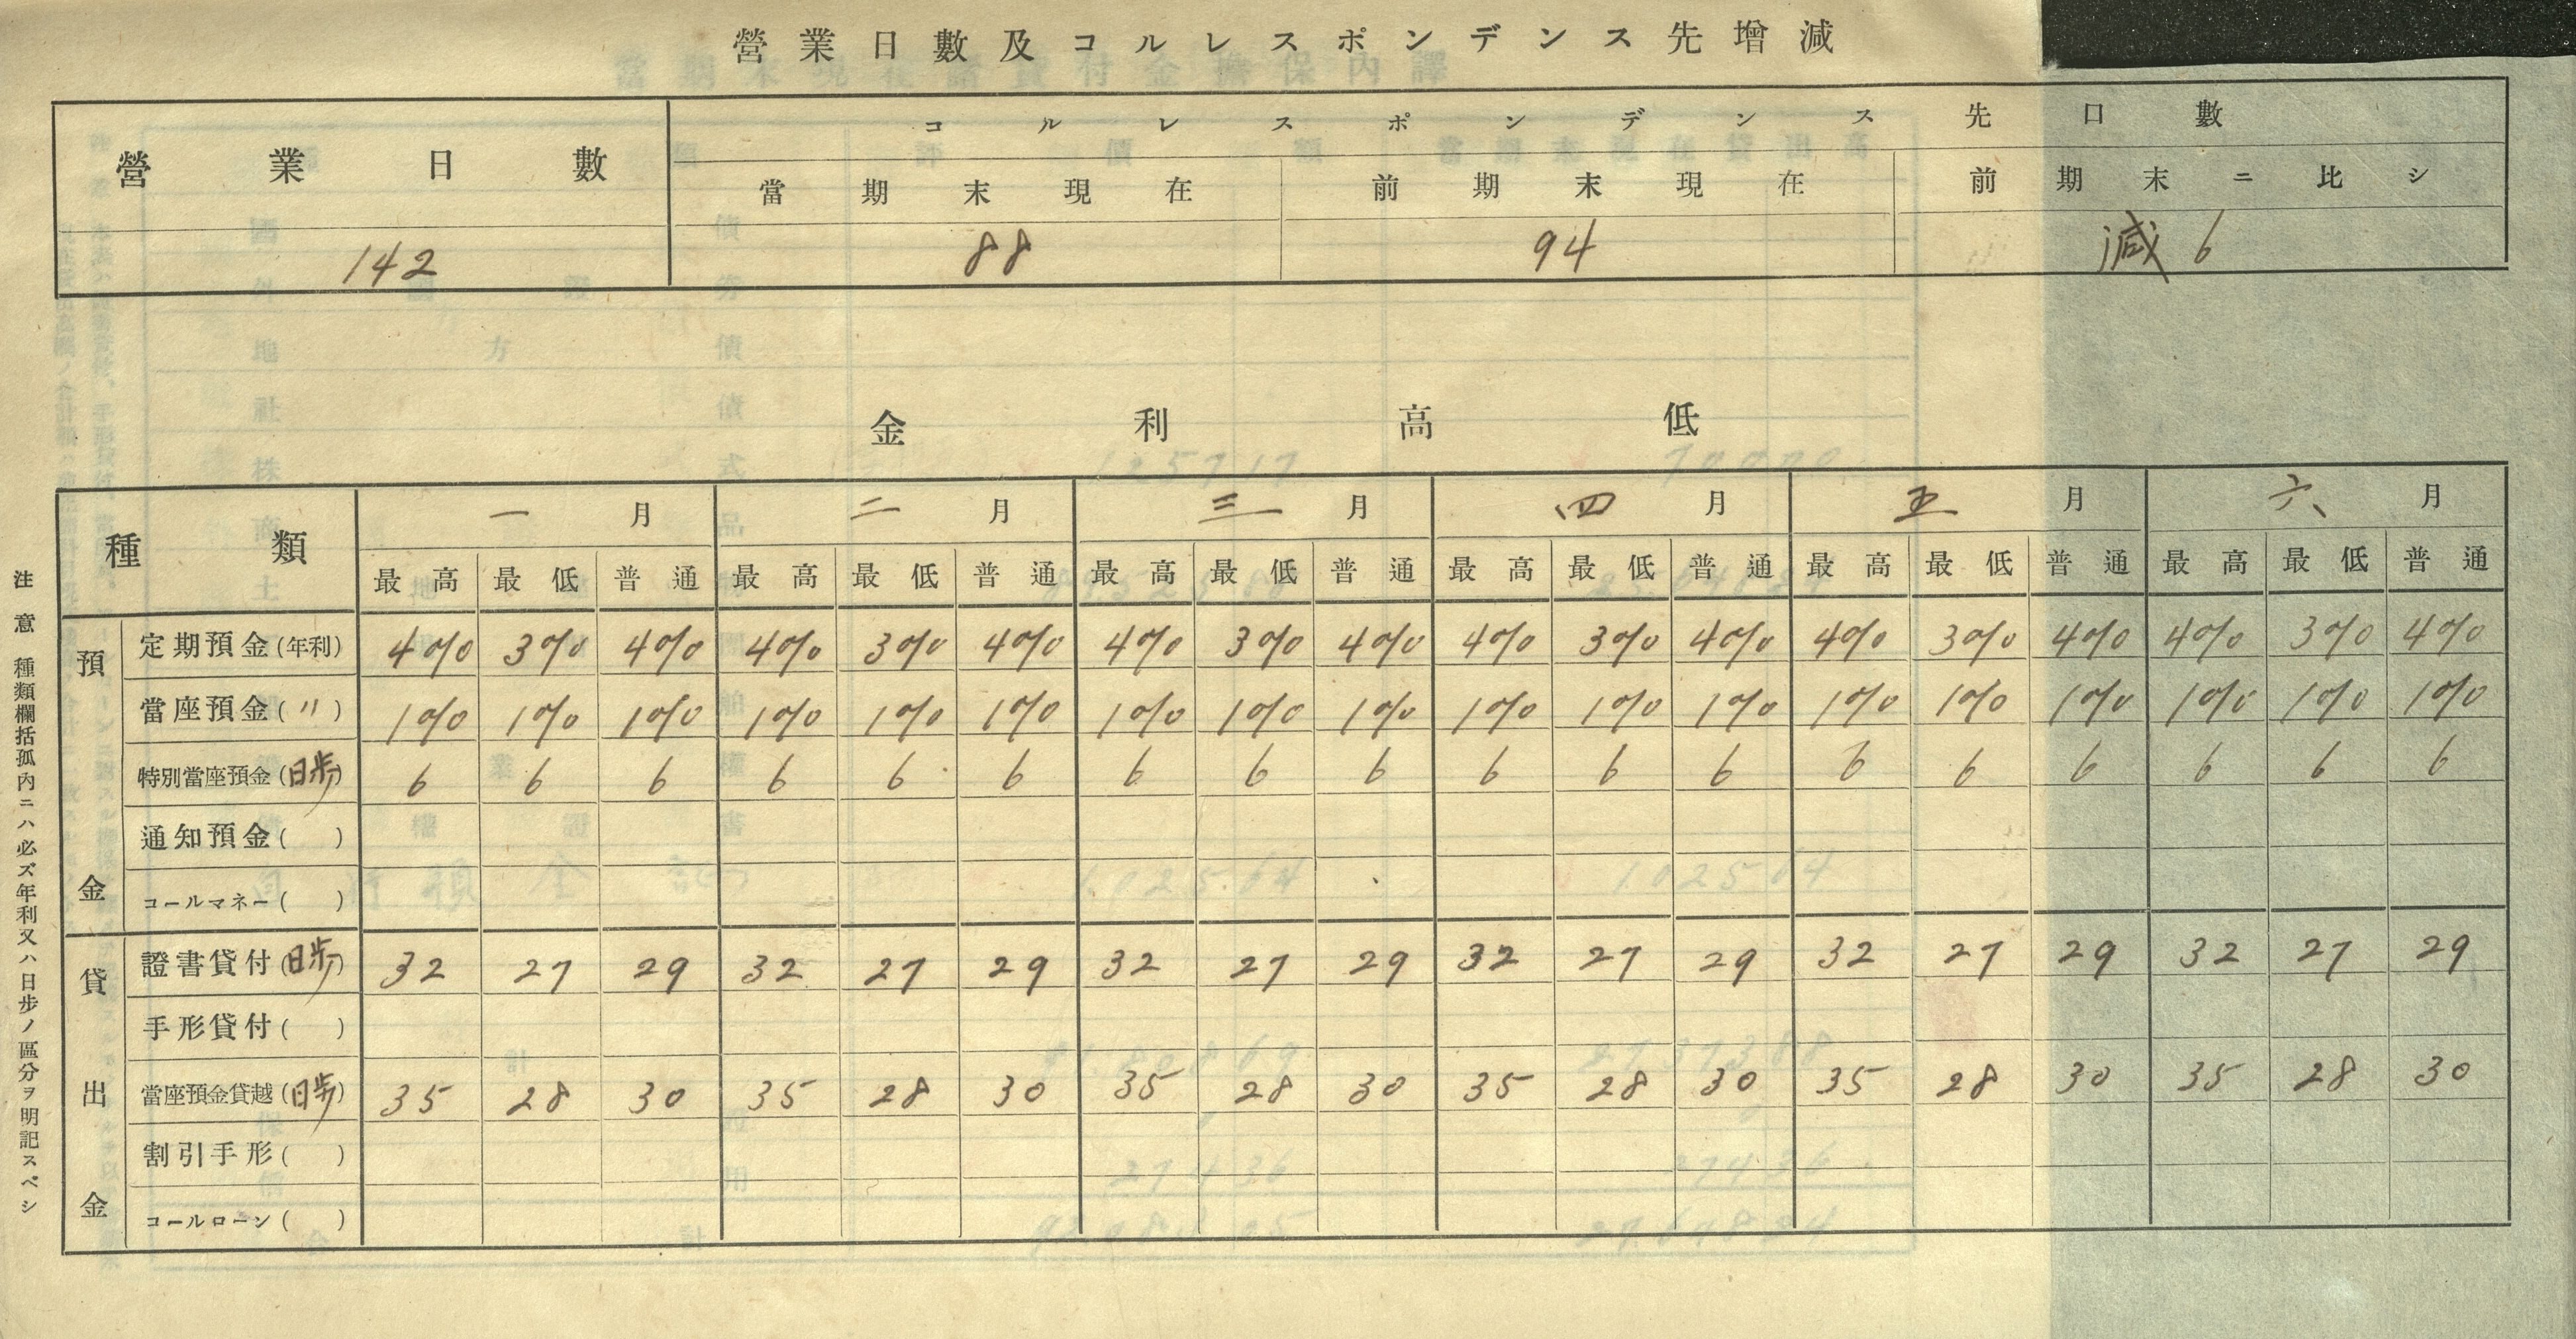 營業日數及コルレスポンデンス先增減
營業日數 コルレスポンデンス先口數
當期末現在 前期末現在 前期末ニ比シ
142 88 94 減6
金利高低
種類 一月 二月 三月 四月 五月 六月
最高 最低 普通 最高 最低 普通 最高 最低 普通 最高 最低 普通 最高 最低 普通 最高 最低 普通
預金
定期預金(年利) 4% 3% 4% 4% 3% 4% 4% 3% 4% 4% 3% 4% 4% 3% 4% 4% 3% 4%
當座預金(〃) 1% 1% 1% 1% 1% 1% 1% 1% 1% 1% 1% 1% 1% 1% 1% 1% 1% 1%
特別當座預金(日歩) 6 6 6 6 6 6 6 6 6 6 6 6 6 6 6 6 6 6
通知預金( )
コールマネー( )
貸出金
證書貸付(日歩) 32 27 29 32 27 29 32 27 29 32 27 29 32 27 29 32 27 29
手形貸付( )
當座預金貸越(日歩) 35 28 30 35 28 30 35 28 30 35 28 30 35 28 30 35 28 30
割引手形( )
コールローン( )
注意 種類欄括孤内ニハ必ズ年利又ハ日歩ノ區分ヲ明記スベシ